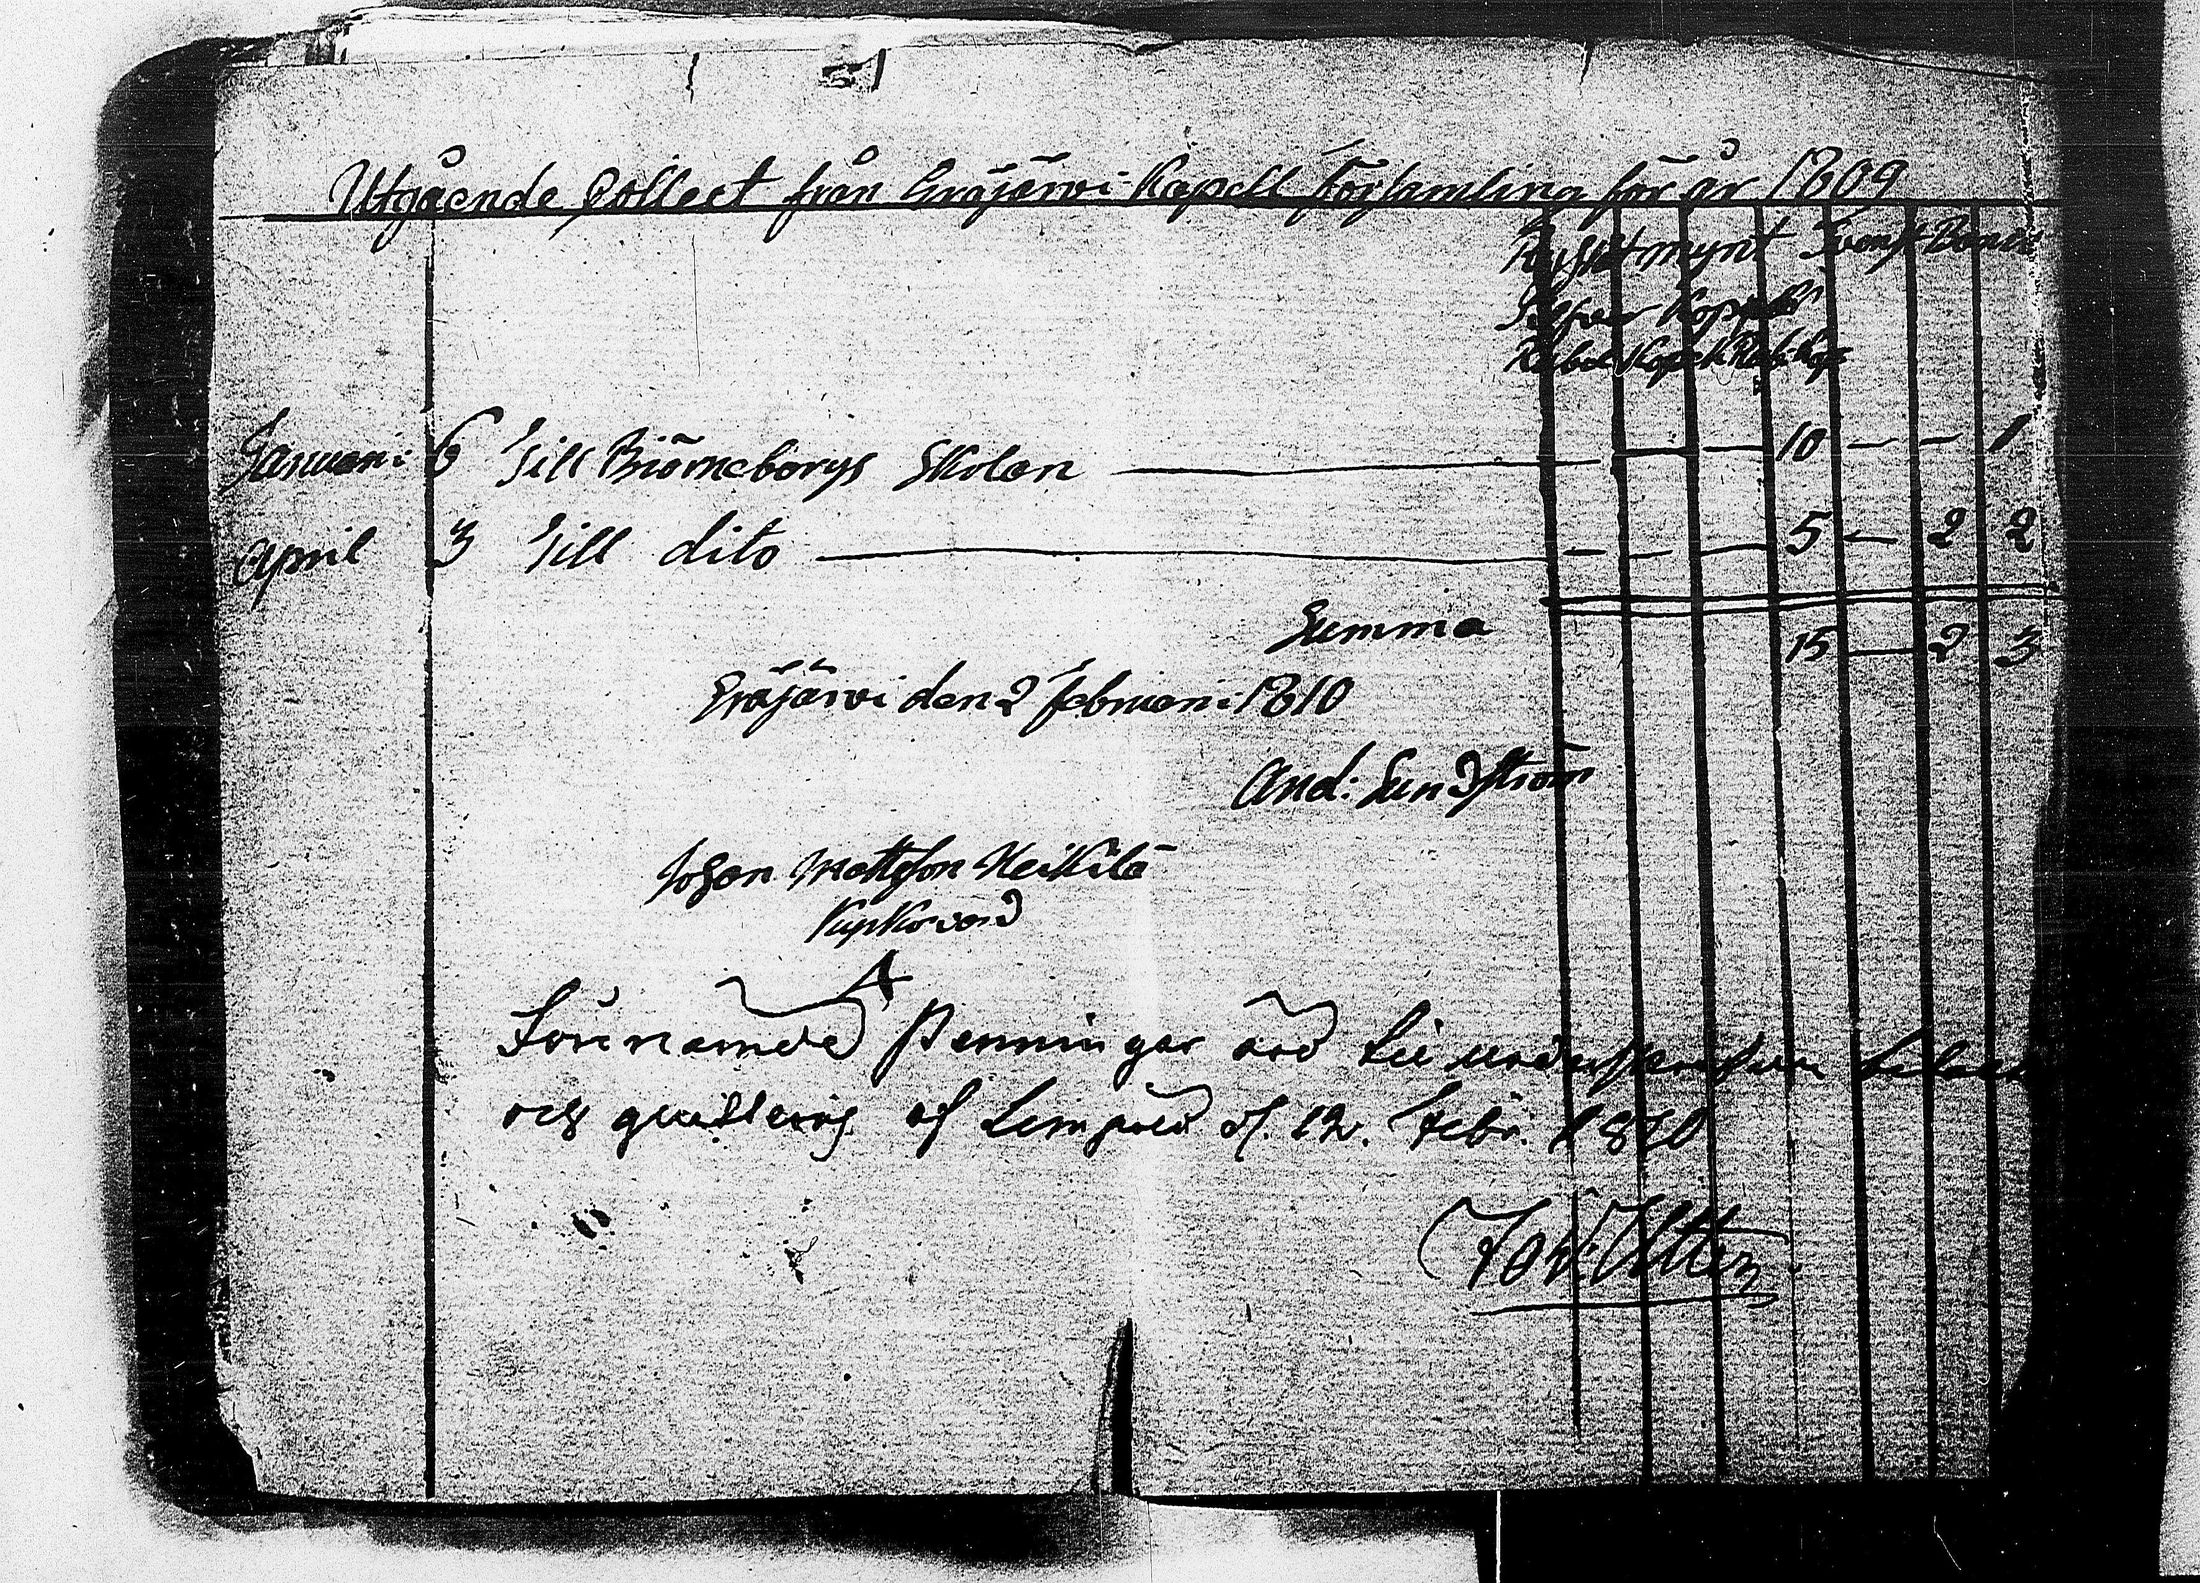 Utgående Collect från Eräjärwi Kapell Församling för år 1809
Ryskt mynt Svensk Banco
Silfver Koppar
Rubel Kopek Rub: Kop
Januari 6 Till Biörneborgs Skolan — — — — 10 — — 1
April 3 Till dito — — — — 5 — 2 2
Summa 15 — 2 3
Eräjärwi den 2 februari 1810
And: Sundström
Johan Mattsson Heikilä
Kyrkovärd
Förenämde Penningar äro till undertecknad
och quitteras af Lempälä d. 12. Febr. 1810